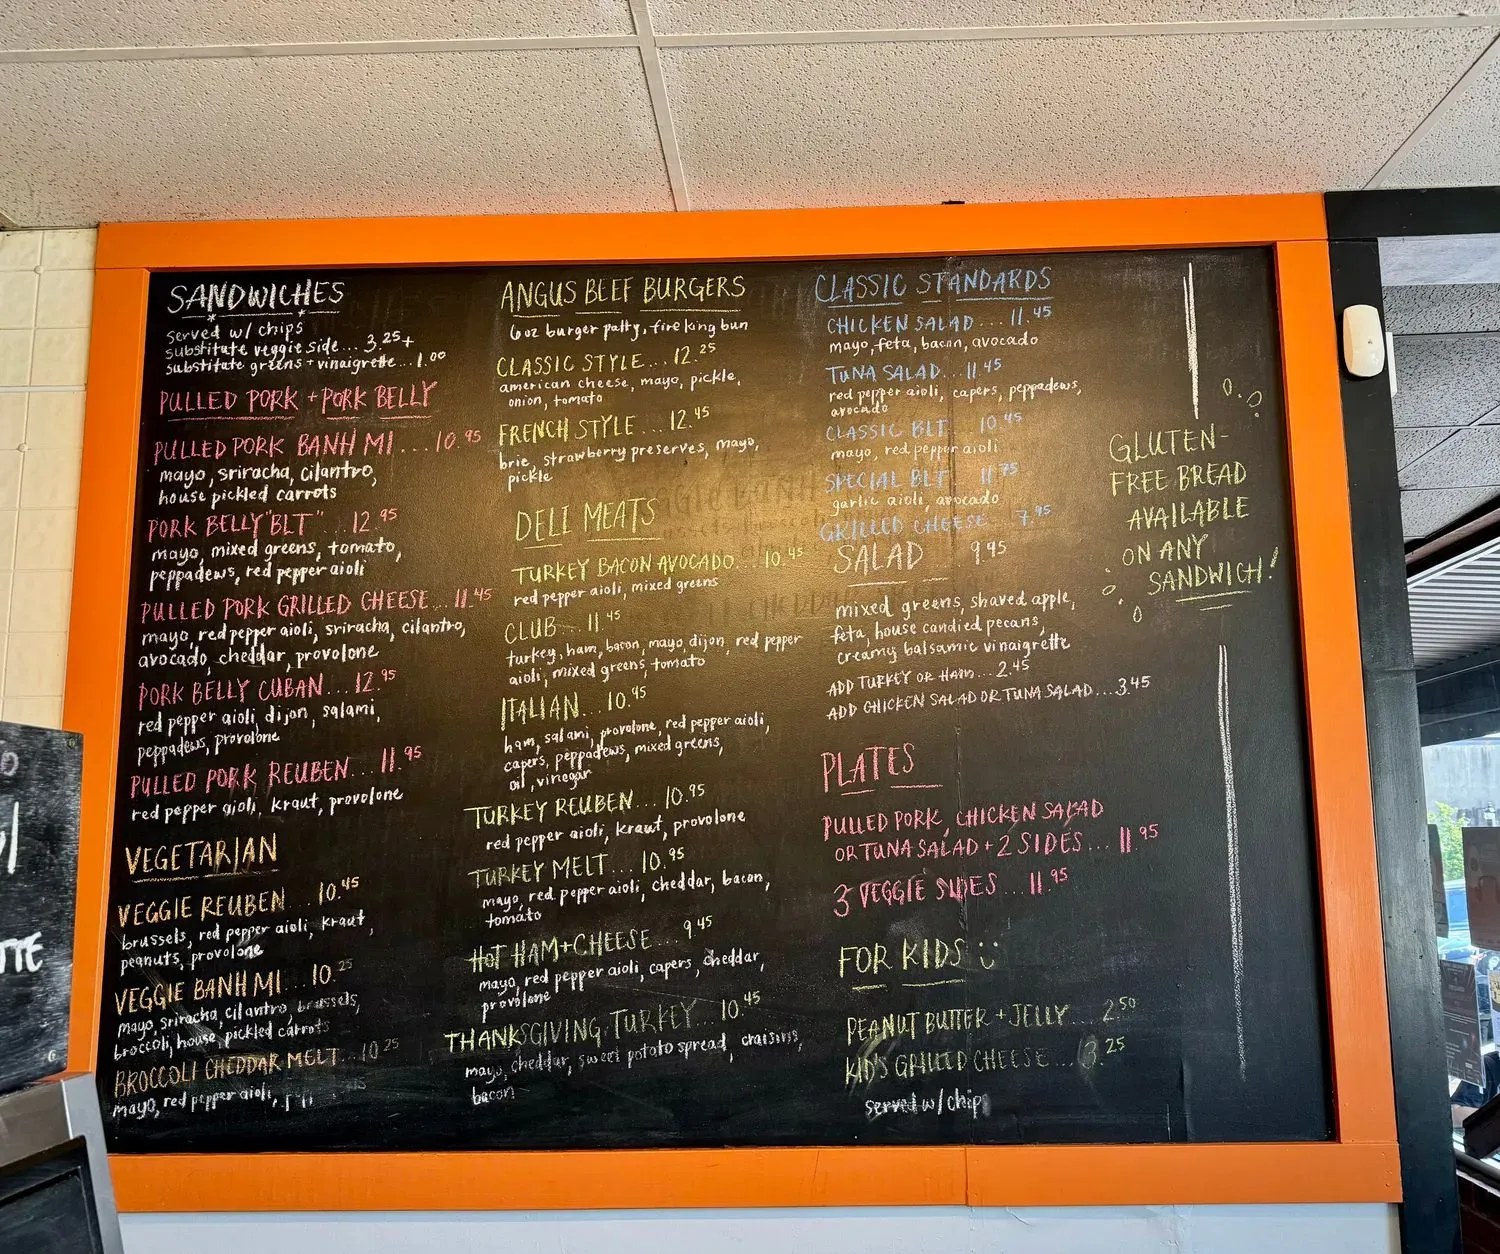 SANDWICHES
served w/ chips
substitute veggie side... 3.25+
substitute greens + vinaigrette...1.00
PULLED PORK + PORK BELLY
PULLED PORK BANH MI ... 10.95
mayo, sriracha, cilantro,
house pickled carrots
PORK BELLY "BLT" ... 12.95
mayo, mixed greens, tomato,
peppadews, red pepper aioli
PULLED PORK GRILLED CHEESE... 11.45
mayo, red pepper aioli, sriracha, cilantro,
avocado, cheddar, provolone
PORK BELLY CUBAN ... 12.95
red pepper aioli, dijon, salami,
peppadews, provolone
PULLED PORK REUBEN... 11.95
red pepper aioli, kraut, provolone
VEGETARIAN
VEGGIE REUBEN ... 10.45
brussels, red pepper aioli, kraut,
peanuts, provolone
VEGGIE BANH MI ... 10.25
mayo, sriracha, cilantro, brussels,
broccoli, house pickled carrots
BROCCOLI CHEDDAR MELT... 10.25
mayo, red pepper aioli,
ANGUS BEEF BURGERS
6oz burger patty, fire king bun
CLASSIC STYLE ... 12.25
american cheese, mayo, pickle,
onion, tomato
FRENCH STYLE ... 12.45
brie, strawberry preserves, mayo,
pickle
DELI MEATS
TURKEY BACON AVOCADO... 10.45
red pepper aioli, mixed greens
CLUB ... 11.45
turkey, ham, bacon, mayo, dijon, red pepper
aioli, mixed greens, tomato
ITALIAN ... 10.45
ham, salami, provolone, red pepper aioli,
capers, peppadews, mixed greens,
oil, vinegar
TURKEY REUBEN ... 10.95
red pepper aioli, kraut, provolone
TURKEY MELT ... 10.95
mayo, red pepper aioli, cheddar, bacon,
tomato
HOT HAM+CHEESE ... 9.45
mayo, red pepper aioli, capers, cheddar,
provolone
THANKSGIVING TURKEY ... 10.45
mayo, cheddar, sweet potato spread, craisins,
bacon
CLASSIC STANDARDS
CHICKEN SALAD ... 11.45
mayo, feta, bacon, avocado
TUNA SALAD ... 11.45
red pepper aioli, capers, peppadews,
avocado
CLASSIC BLT ... 10.45
mayo, red pepper aioli
SPECIAL BLT ... 11.75
garlic aioli, avocado
GRILLED CHEESE ... 7.95
SALAD ... 9.45
mixed greens, shaved apple,
feta, house candied pecans,
creamy balsamic vinaigrette
ADD TURKEY OR HAM ... 2.45
ADD CHICKEN SALAD OR TUNA SALAD ...3.45
PLATES
PULLED PORK, CHICKEN SALAD
OR TUNA SALAD + 2 SIDES ... 11.95
3 VEGGIE SIDES ... 11.95
FOR KIDS
PEANUT BUTTER + JELLY ... 2.50
KIDS GRILLED CHEESE ... 3.25
served w/ chip
GLUTEN-
FREE BREAD
AVAILABLE
ON ANY
SANDWICH!